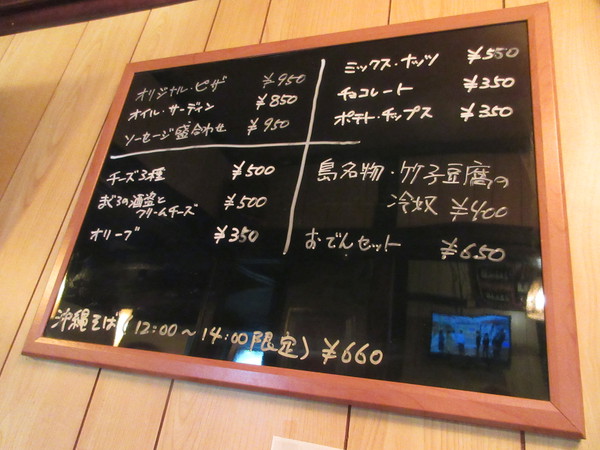 オリジナル・ピザ ¥950
オイル・サーディン ¥850
ソーセージ盛合わせ ¥950
ミックス・ナッツ ¥550
チョコレート ¥350
ポテト・チップス ¥350
チーズ3種 ¥500
まぐろの酒盗と
クリームチーズ ¥500
オリーブ ¥350
島名物・竹子豆腐の
冷奴 ¥400
おでんセット ¥650
沖縄そば(12:00〜14:00限定) ¥660